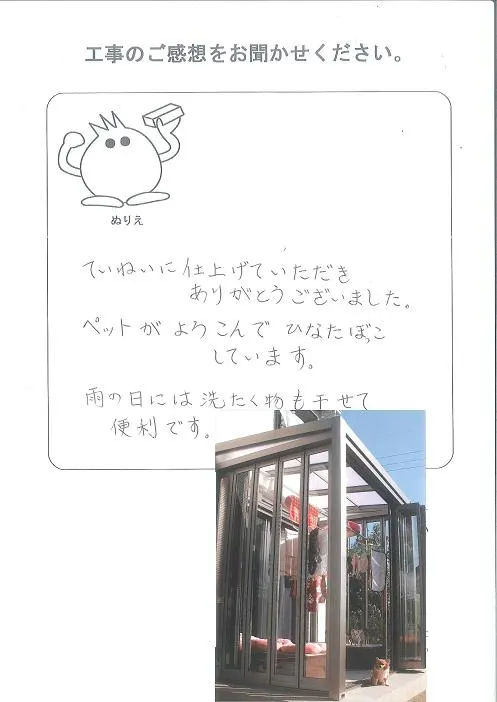 工事のご感想をお聞かせください。
ぬりえ
ていねいに仕上げていただき
ありがとうございました。
ペットが よろこんで ひなたぼっこ
しています。
雨の日には洗たく物も干せて
便利です。